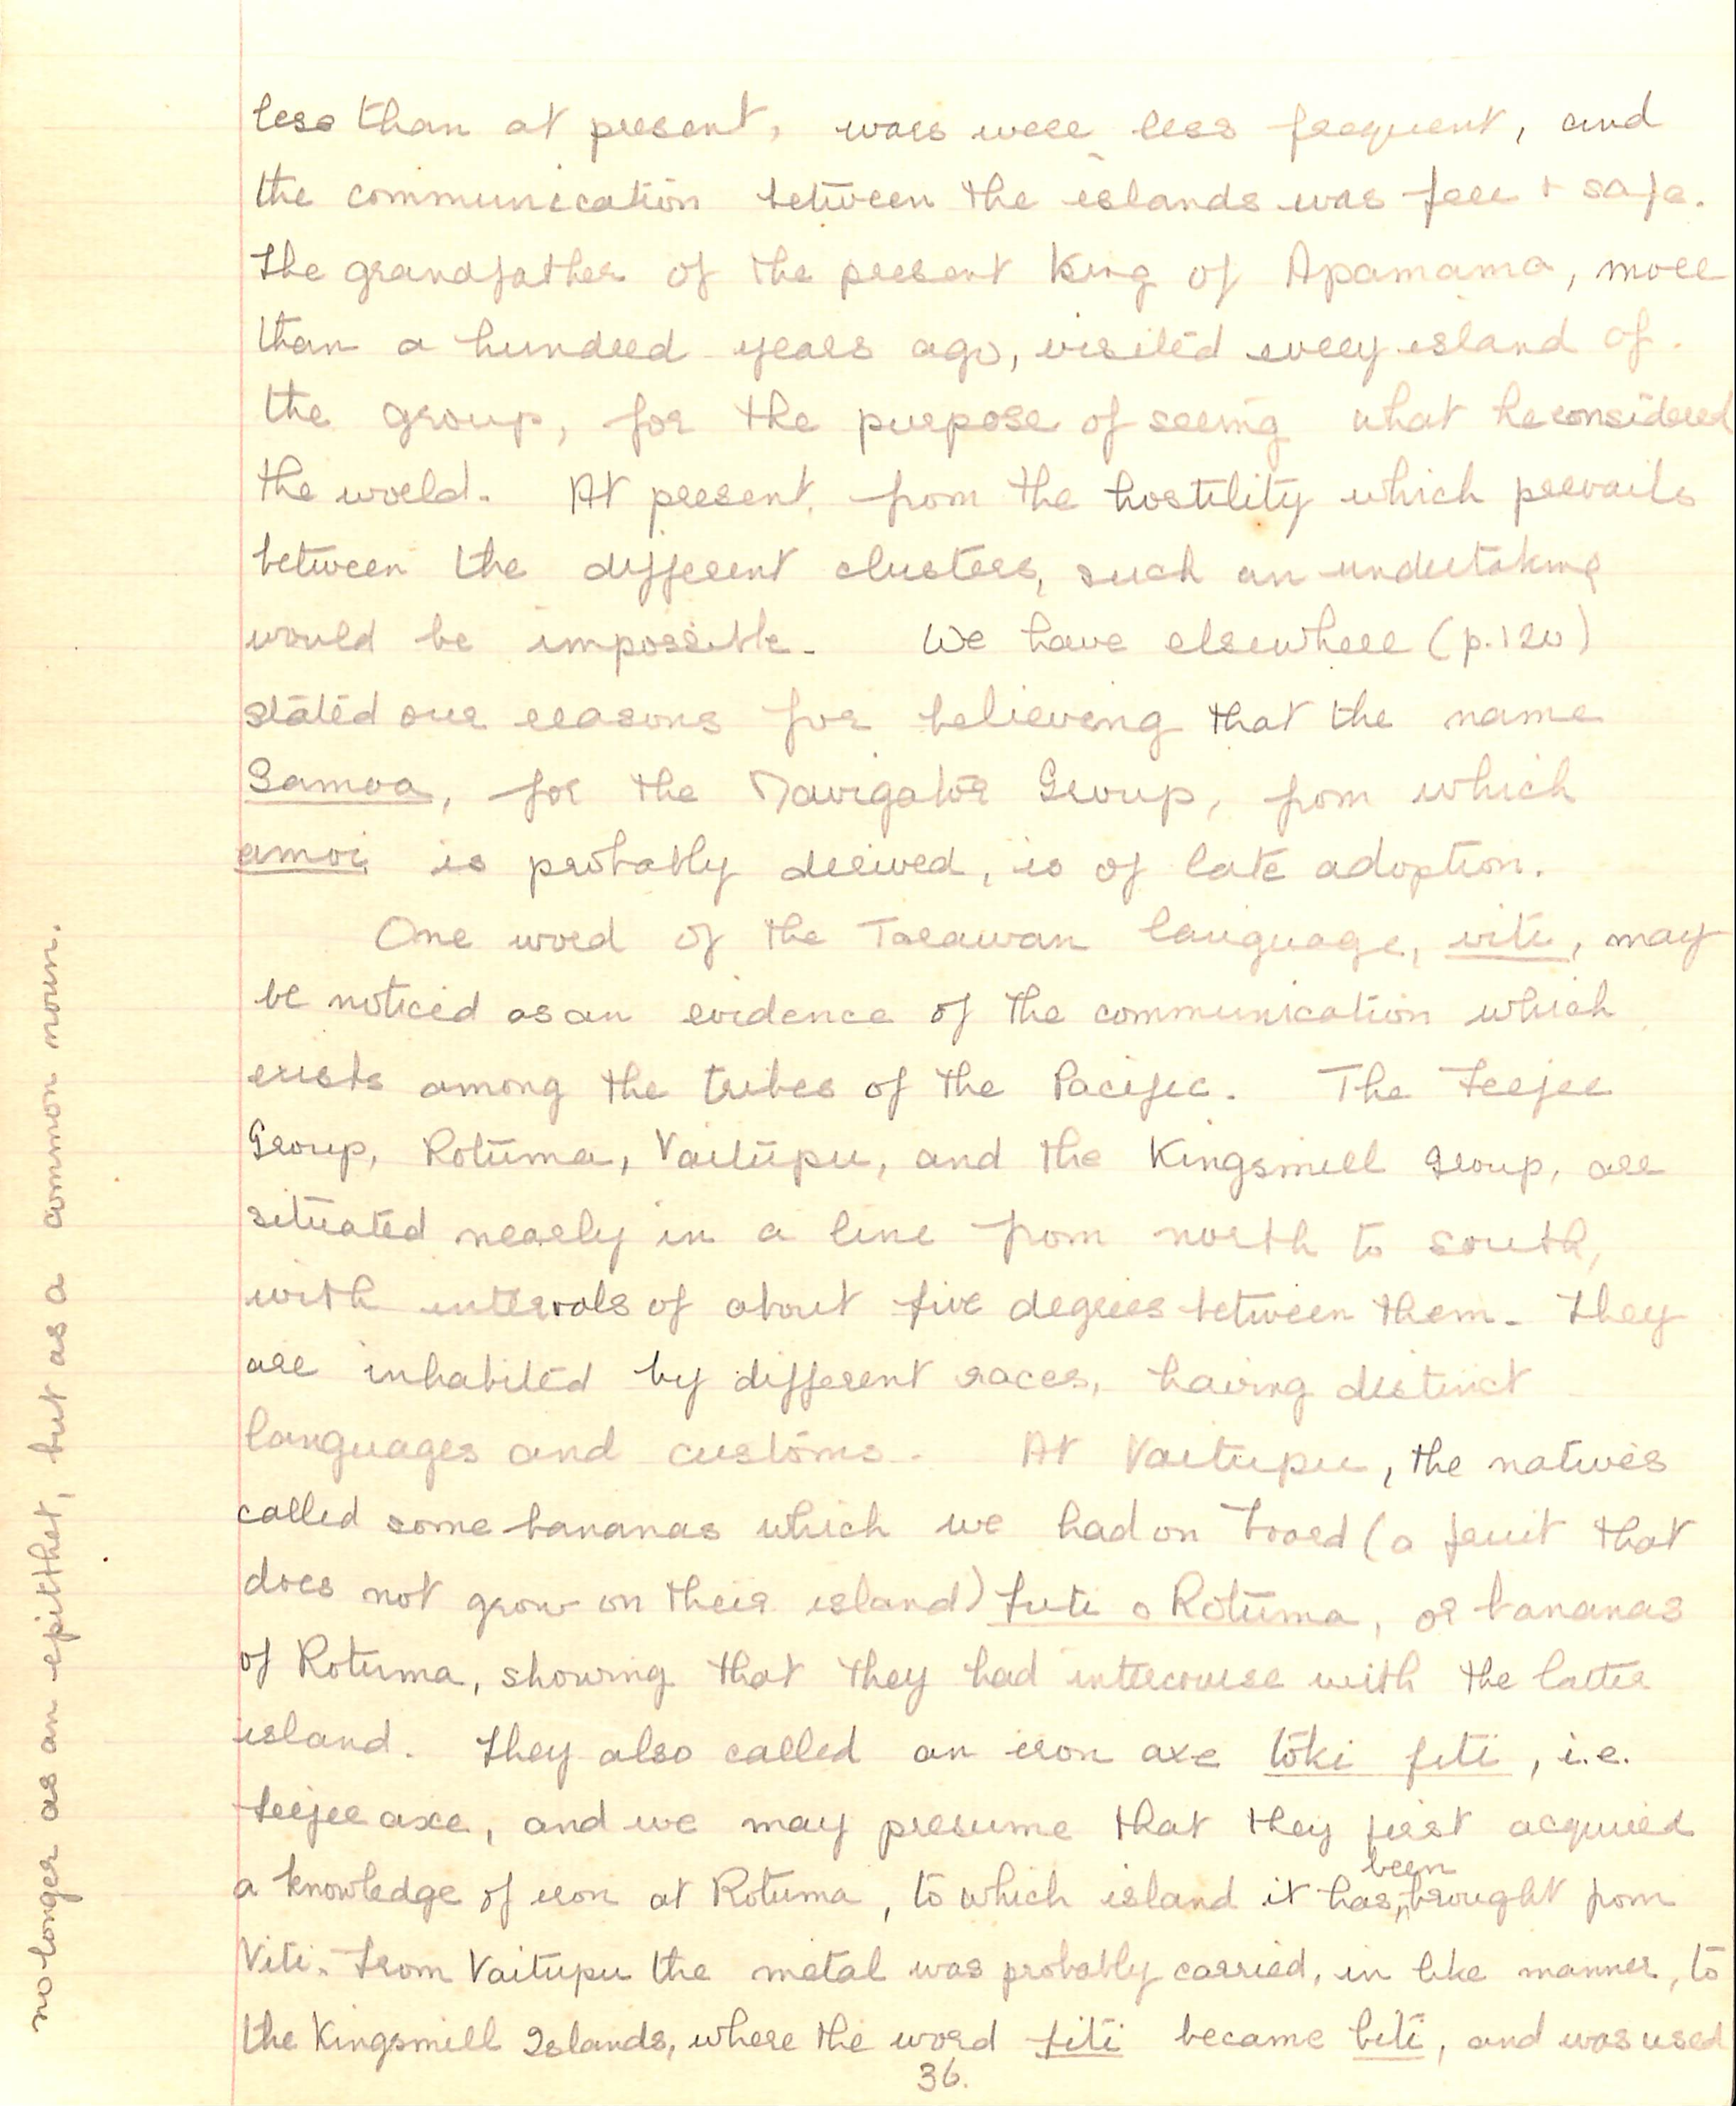 less than at present, wars were less frequent, and
the communication between the islands was free + safe.
The grandfather of the present King of Apamama, more
than a hundred years ago, visited every island of
the group, for the purpose of seeing what he considered
the world. At present, from the hostility which prevails
between the different clusters, such an undertaking
would be impossible. We have elsewhere (p.120)
stated our reasons for believing that the name
Samoa, for the Navigator Group, from which
amoi is probably derived, is of late adoption.
One word of the Tarawan language, viti, may
be noticed as an evidence of the communication which
exists among the tribes of the Pacific. The Feejee
Group, Rotuma, Vaitupu, and the Kingsmill Group, are
situated nearly in a line from north to south,
with intervals of about five degrees between them. They
are inhabited by different races, having distinct
languages and customs. At Vaitupu, the natives
called some bananas which we had on board (a fruit that
does not grow on their island) futi o Rotuma, or bananas
of Rotuma, showing that they had intercourse with the latter
island. They also called an iron axe toki fiti, i.e.
Feejee axe, and we may presume that they first acquired
a knowledge of iron at Rotuma, to which island it has been brought from
Viti. From Vaitupu the metal was probably carried, in like manner, to
the Kingsmill Islands, where the word fiti became biti, and was used
no longer as an epitthet, but as a common noun.
36.